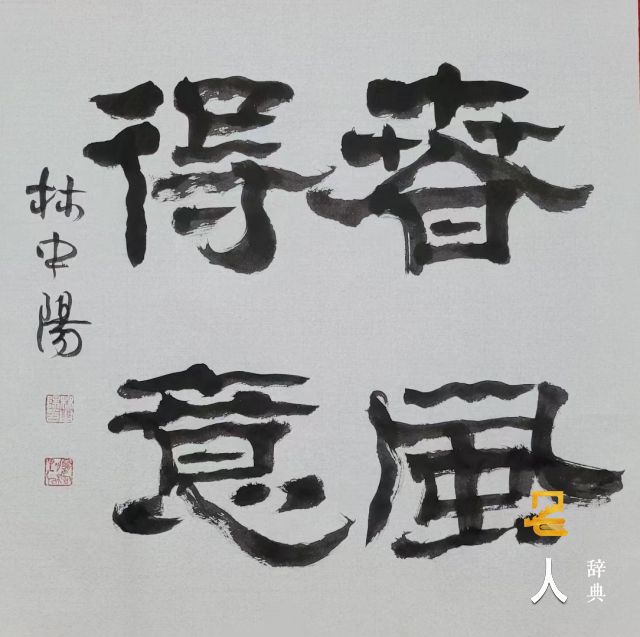 春風
得意
林中陽
名人
辞典